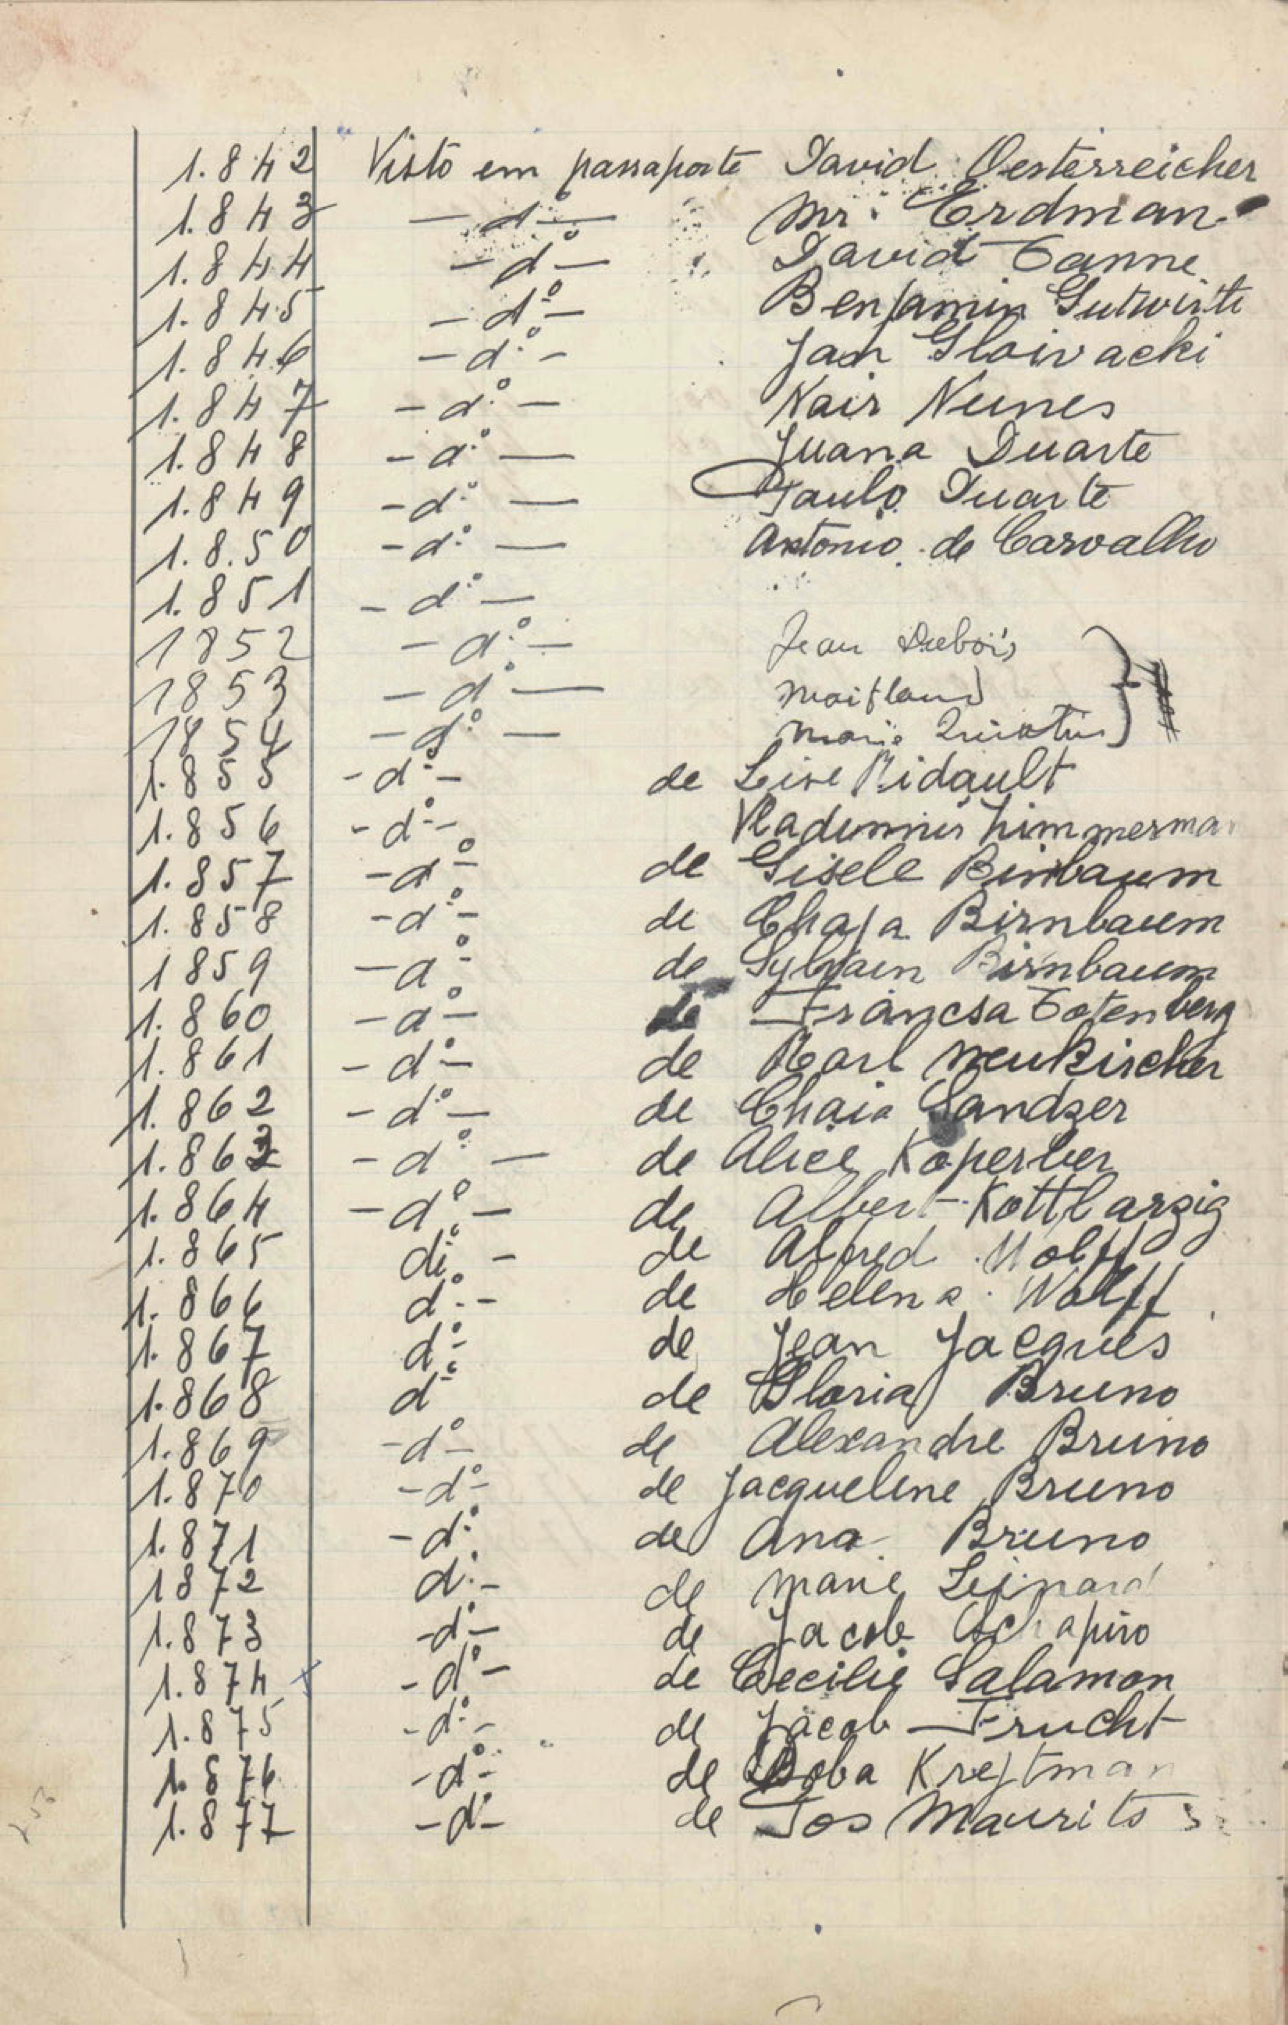 1.842 Visto em passaporte David Oesterreicher
1.843 — dº — Mr. Erdman
1.844 — dº — David Tanne
1.845 — dº — Benjamin Gutwirth
1.846 — dº — Jan Gloivacki
1.847 — dº — Nair Nunes
1.848 — dº — Juana Duarte
1.849 — dº — Paulo Duarte
1.8.50 — dº — Antonio de Carvalho
1.851 — dº —
1852 — dº — Jean Dubois
1853 — dº — Maitland
1854 — dº — Marie
1.855 — dº — de Lise Bidault
1.856 — dº —
1.857 — dº — de Gisele Birnbaum
1.858 — dº — de Chaja Birnbaum
1859 — dº — de Sylvain Birnbaum
1.860 — dº — de Francsa Totenberg
1.861 — dº — de Karl Neukircher
1.862 — dº — de Chaia Sandzer
1.863 — dº — de Alice Koperber
1.864 — dº — de Albert Kottlarzig
1.865 dº — de Alfred Wolff
1.866 dº — de Helena Wolff
1.867 dº — de Jean Jacques
1.868 dº de Gloria Bruno
1.869 — dº — de Alexandre Bruno
1.870 — dº — de Jacqueline Bruno
1.871 — dº — de Ana Bruno
1872 dº — de Marie
1.873 — dº — de Jacob Schapiro
1.874 — dº — de Cecilie Salamon
1.875 — dº — de Jacob Frucht
1.876 — dº — de Boba Krejtman
1.877 — dº — de Jos Maurits